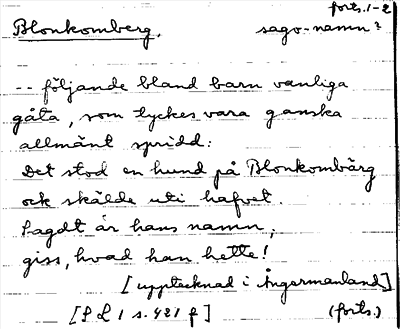 forts. 1-2
Blonkomberg. sago-namn?
-- följande bland barn vanliga
gåta, som tyckes vara ganska
allmänt spridd:
Det stod en hund på Blonkombärg
ock skälde uti hafvet.
Sagdt är hans namn,
giss, hvad han hette!
[upptecknad i Ångermanland]
[S L 1 s. 421 f] (forts.)